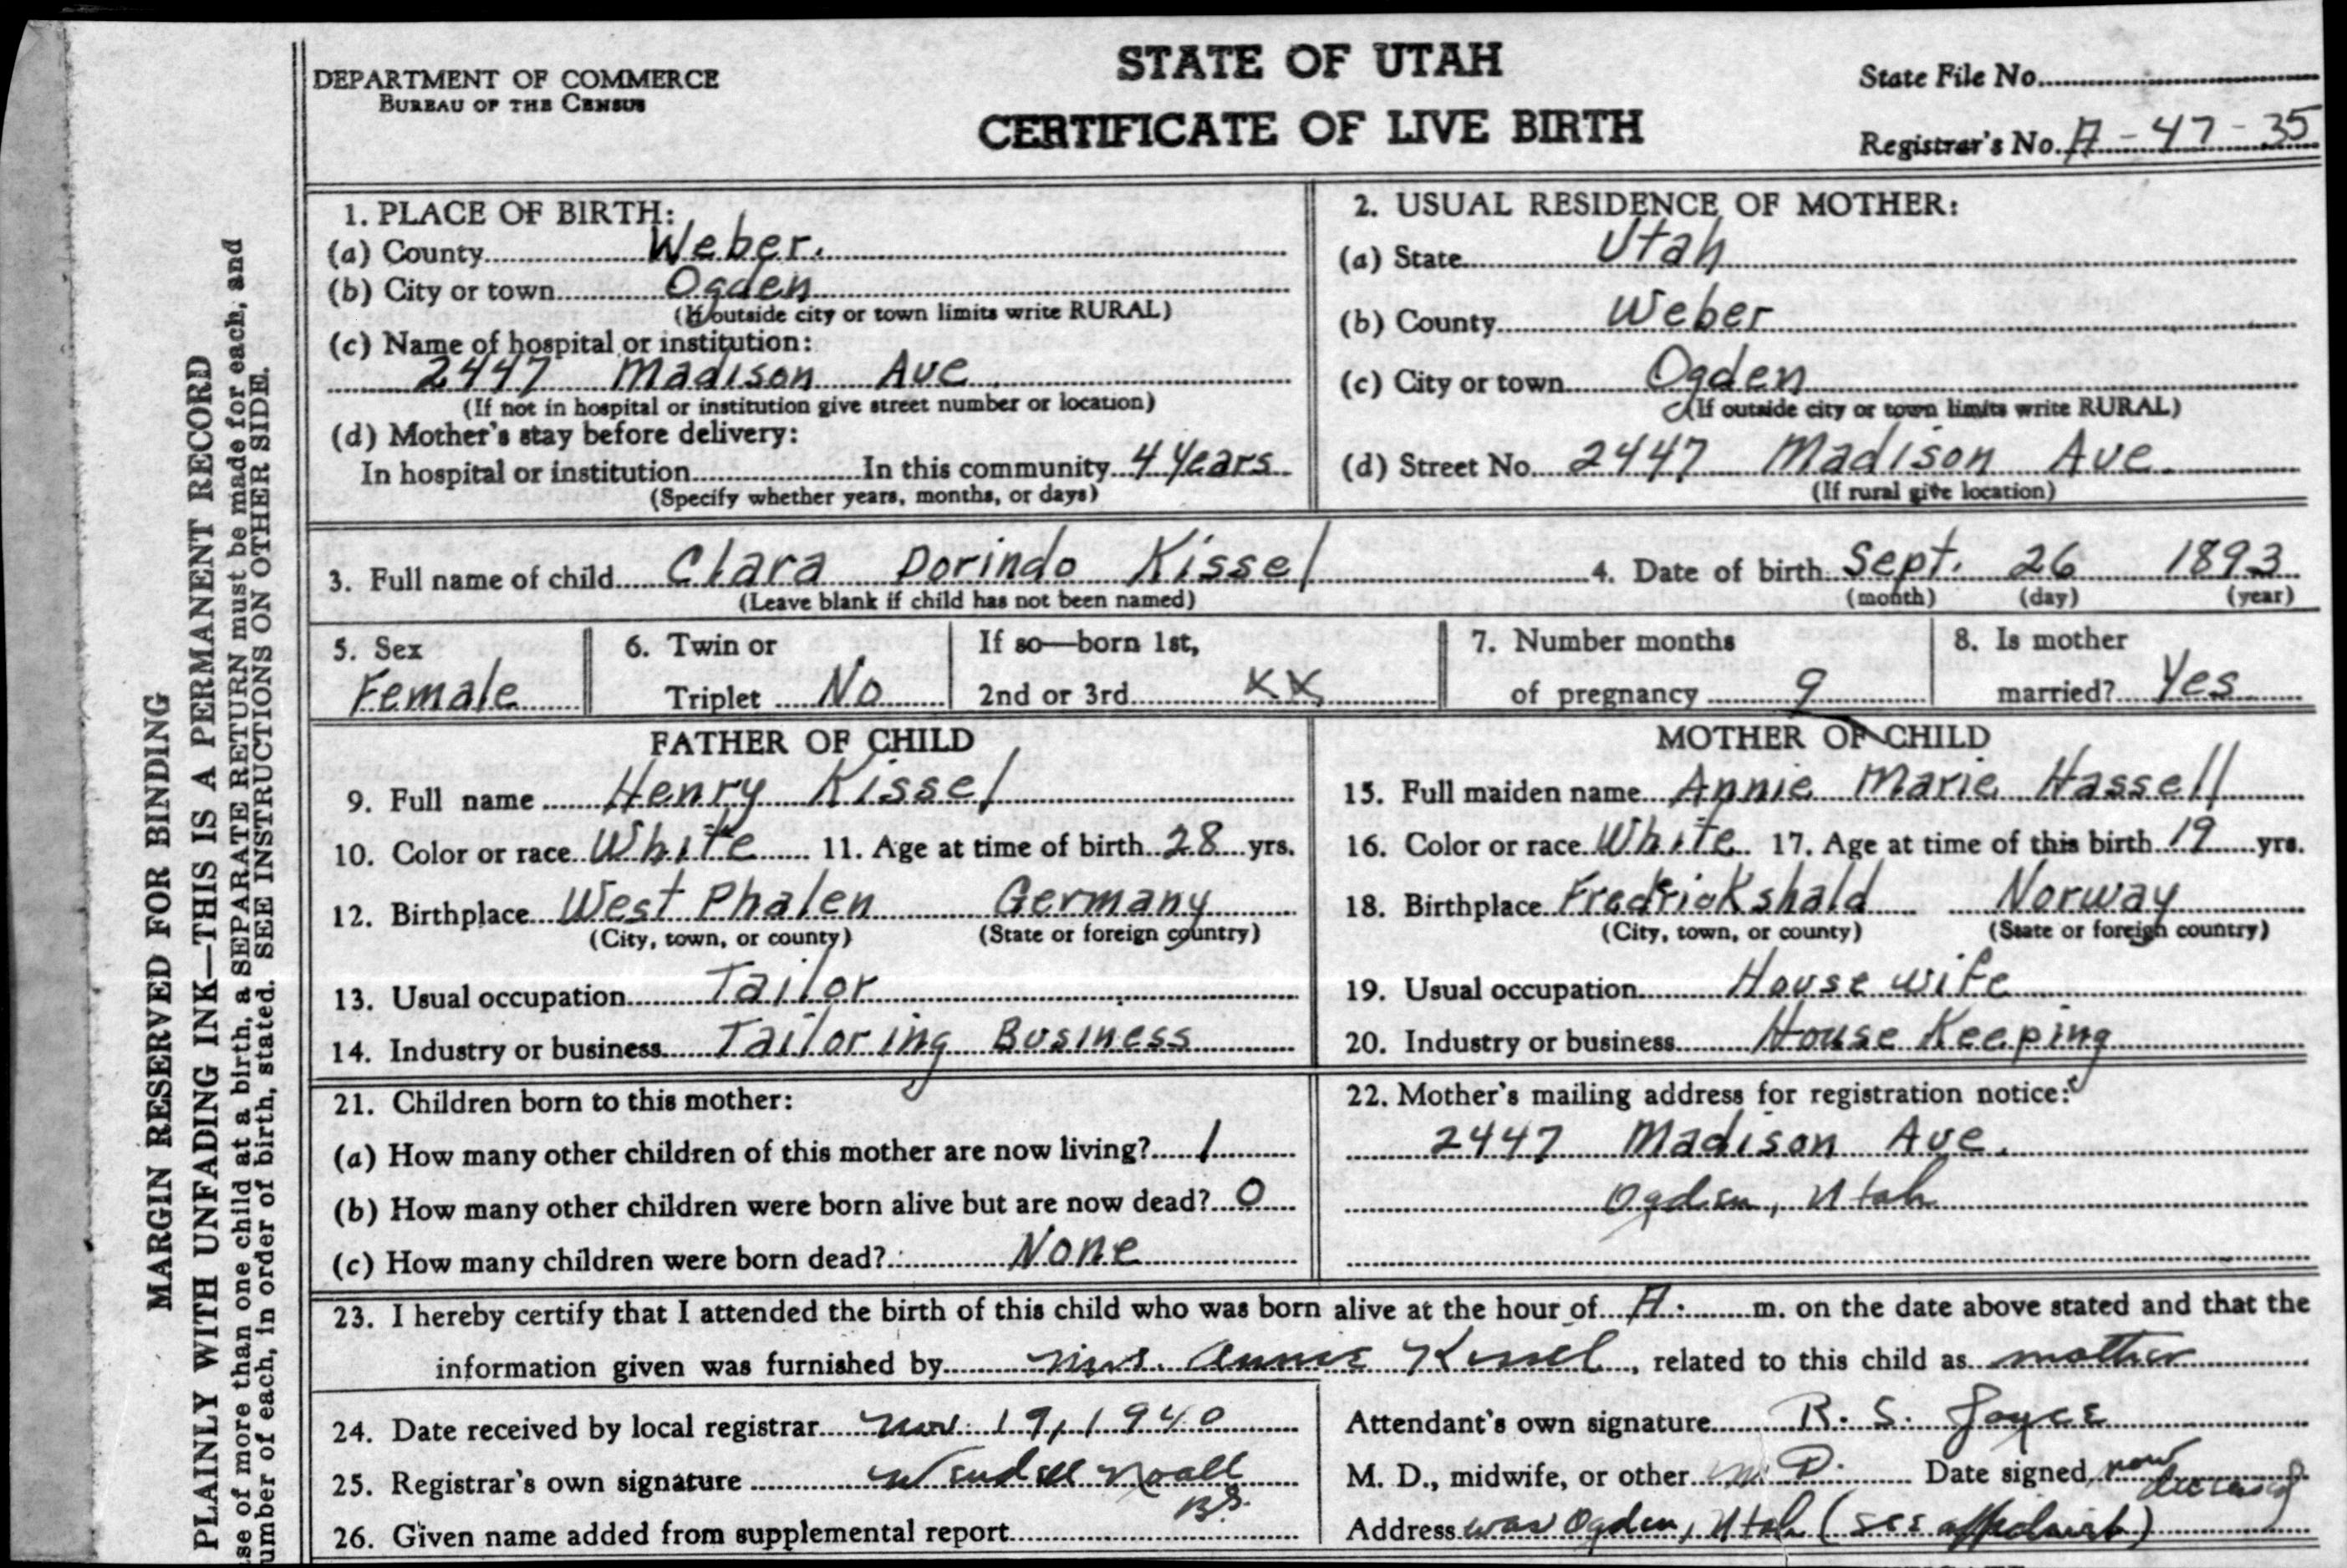 MARGIN RESERVED FOR BINDING
PLAINLY WITH UNFADING INK—THIS IS A PERMANENT RECORD
se of more than one child at a birth, a SEPARATE RETURN must be made for each, and
umber of each, in order of birth, stated. SEE INSTRUCTIONS ON OTHER SIDE.
DEPARTMENT OF COMMERCE
BUREAU OF THE CENSUS
STATE OF UTAH
CERTIFICATE OF LIVE BIRTH
State File No.
Registrar's No. A-47-35
1. PLACE OF BIRTH:
(a) County Weber.
(b) City or town Ogden
(If outside city or town limits write RURAL)
(c) Name of hospital or institution:
2447 Madison Ave
(If not in hospital or institution give street number or location)
(d) Mother's stay before delivery:
In hospital or institution In this community 4 Years
(Specify whether years, months, or days)
2. USUAL RESIDENCE OF MOTHER:
(a) State Utah
(b) County Weber
(c) City or town Ogden
(If outside city or town limits write RURAL)
(d) Street No. 2447 Madison Ave.
(If rural give location)
3. Full name of child Clara Dorindo Kissel 4. Date of birth Sept. 26 1893
(Leave blank if child has not been named) (month) (day) (year)
5. Sex
Female
6. Twin or
Triplet No
If so—born 1st,
2nd or 3rd XX
7. Number months
of pregnancy 9
8. Is mother
married? Yes
FATHER OF CHILD
9. Full name Henry Kissel
10. Color or race White 11. Age at time of birth 28 yrs.
12. Birthplace West Phalen Germany
(City, town, or county) (State or foreign country)
13. Usual occupation Tailor
14. Industry or business Tailoring Business
MOTHER OF CHILD
15. Full maiden name Annie Marie Hassell
16. Color or race White 17. Age at time of this birth 19 yrs.
18. Birthplace Fredrickshald Norway
(City, town, or county) (State or foreign country)
19. Usual occupation House wife
20. Industry or business House Keeping
21. Children born to this mother:
(a) How many other children of this mother are now living? 1
(b) How many other children were born alive but are now dead? 0
(c) How many children were born dead? None
22. Mother's mailing address for registration notice:
2447 Madison Ave.
Ogden, Utah
23. I hereby certify that I attended the birth of this child who was born alive at the hour of A. m. on the date above stated and that the
information given was furnished by Mrs. Annie Kissel, related to this child as mother
24. Date received by local registrar Nov. 19, 1940
25. Registrar's own signature Wendell Noall
B.S.
26. Given name added from supplemental report
Attendant's own signature R. S. Joyce
M. D., midwife, or other M. D. Date signed now deceased
Address was Ogden, Utah (see affidavit)